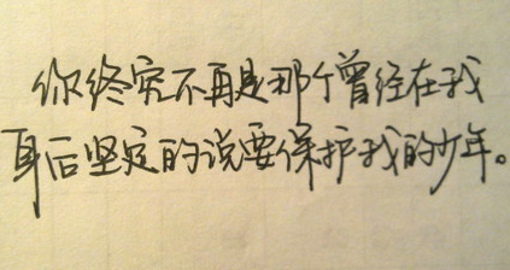 你终究不再是那个曾经在我
耳后坚定的说要保护我的少年。